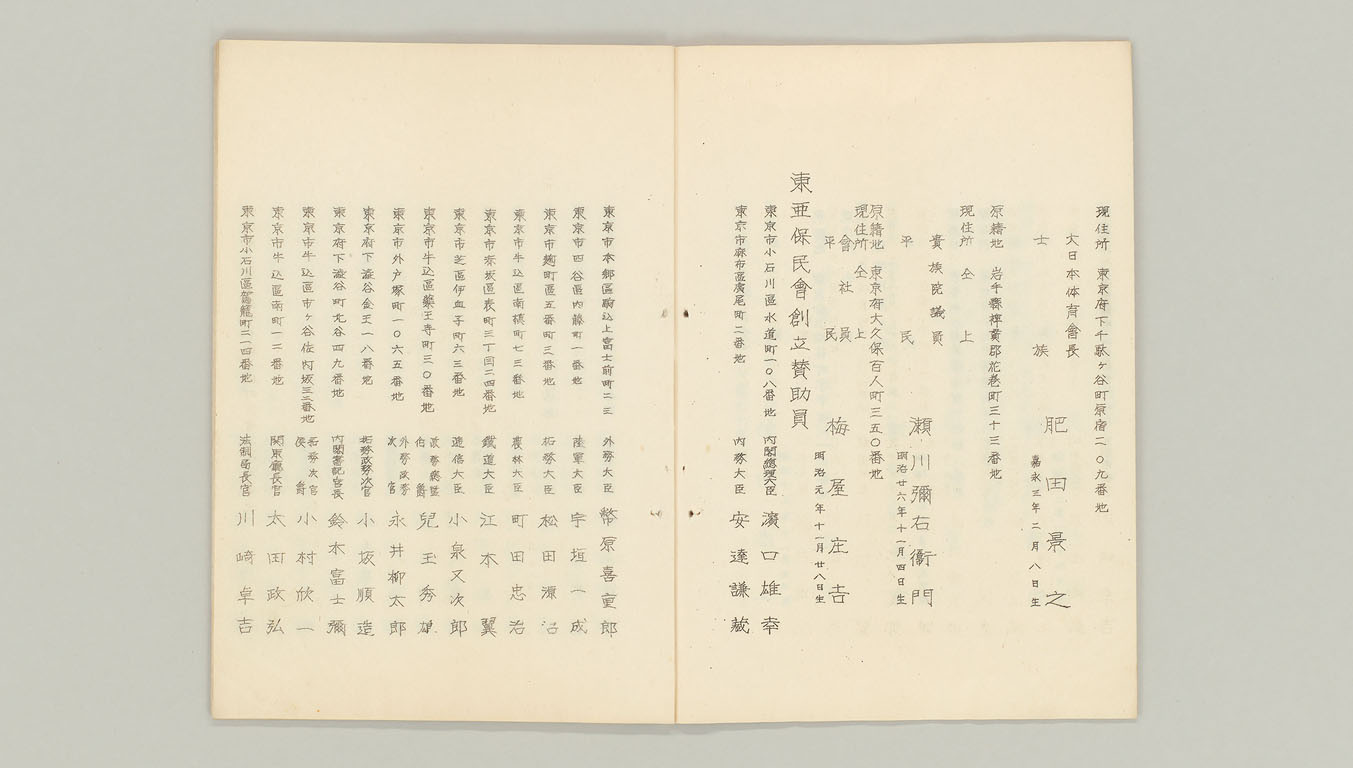 現住所　東京府下千駄ヶ谷町原宿二〇九番地
大日本体育會長
士族　肥田景之
嘉永三年二月八日生
原籍地　岩手縣稗貫郡花巻町三十三番地
現住所　仝上
貴族院議員
平民　瀬川彌右衞門
明治廿六年十一月四日生
原籍地　東京府大久保百人町三五〇番地
現住所　仝上
會社員
平民　梅屋庄吉
明治元年十一月廿八日生
東亜保民會創立賛助員
東京市小石川區水道町一〇八番地　内閣總理大臣　濱口雄幸
東京市麻布區廣尾町二番地　内務大臣　安達謙蔵
東京市本郷區駒込上富士前町二三　外務大臣　幣原喜重郎
東京市四谷區内藤町一番地　陸軍大臣　宇垣一成
東京市麹町區五番町三番地　拓務大臣　松田源治
東京市牛込區南榎町七三番地　農林大臣　町田忠治
東京市赤坂區表町三丁目二四番地　鐵道大臣　江木翼
東京市芝區伊皿子町六三番地　逓信大臣　小泉又次郎
東京市牛込區藥王寺町三〇番地　政務總監　伯爵　兒玉秀雄
東京市外戸塚町一〇六五番地　外務政務次官　永井柳太郎
東京府下澁谷金王一八番地　拓務政務次官　小坂順造
東京府下澁谷町尢谷四九番地　内閣書記官長　鈴木富士彌
東京市牛込區市ヶ谷佐内坂三三番地　拓務次官　侯爵　小村欣一
東京市牛込區南町一二番地　関東廳長官　太田政弘
東京市小石川區駕籠町二一四番地　法制局長官　川﨑卓吉